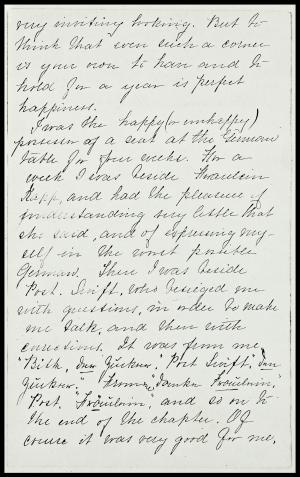 very inviting looking. But to
think that even such a corner
is your own to have and to
hold for a year is perfect
happiness.
I was the happy (or unhappy)
possessor of a seat at the German
table for four weeks. For a
week I was beside Fraulein
Kapp, and had the pleasure of
understanding very little that
she said, and of expressing my-
self in the worst possible
German. Then I was beside
Prof. Swift, who besieged me
with questions, in order to make
me talk, and then with
corrections. It was from me,
"Bitte, Zucker." Prof Swift, "Den
Zucker." From me, "Danke Fräulein,"
Prof. "Fräulein," and so on to
the end of the chapter. Of
course it was very good for me,